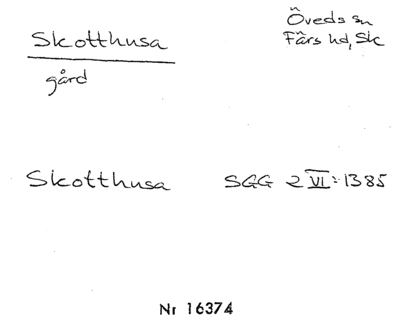 Skotthusa
Öveds sn
Färs hd, Sk
gård
Skotthusa SGG 2 VI:1385
Nr 16374